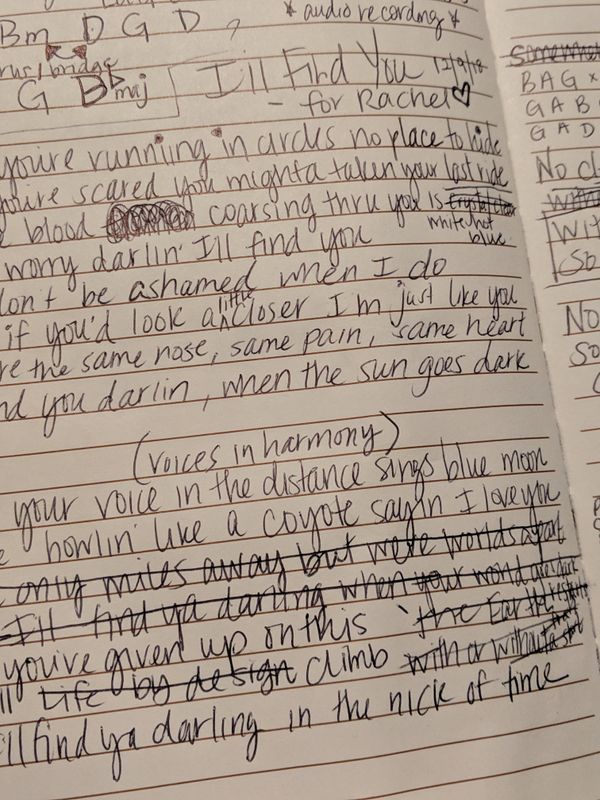 Bm D G D ,
* audio recording *
rus/bridge
G Bbmaj
I'll Find You 12/9/18
- for Rachel♡
you're running in circles no place to hide
you're scared you mighta taken your last ride
blood coarsing thru you is crystal clear
white hot
blue.
worry darlin' I'll find you
don't be ashamed when I do
if you'd look a little closer I'm just like you
re the same nose, same pain, same heart
nd you darlin, when the sun goes dark
(voices in harmony)
your voice in the distance sings blue moon
howlin' like a coyote sayin I love you
only miles away but we're worlds apart
I'll find ya darling when your world goes dark
you've given up on this the Earth
ll Life by design climb with or without
'll find ya darling in the nick of time
Somewhat
B A G
G A B
G A D
No cl
with
Wit
So
No
so